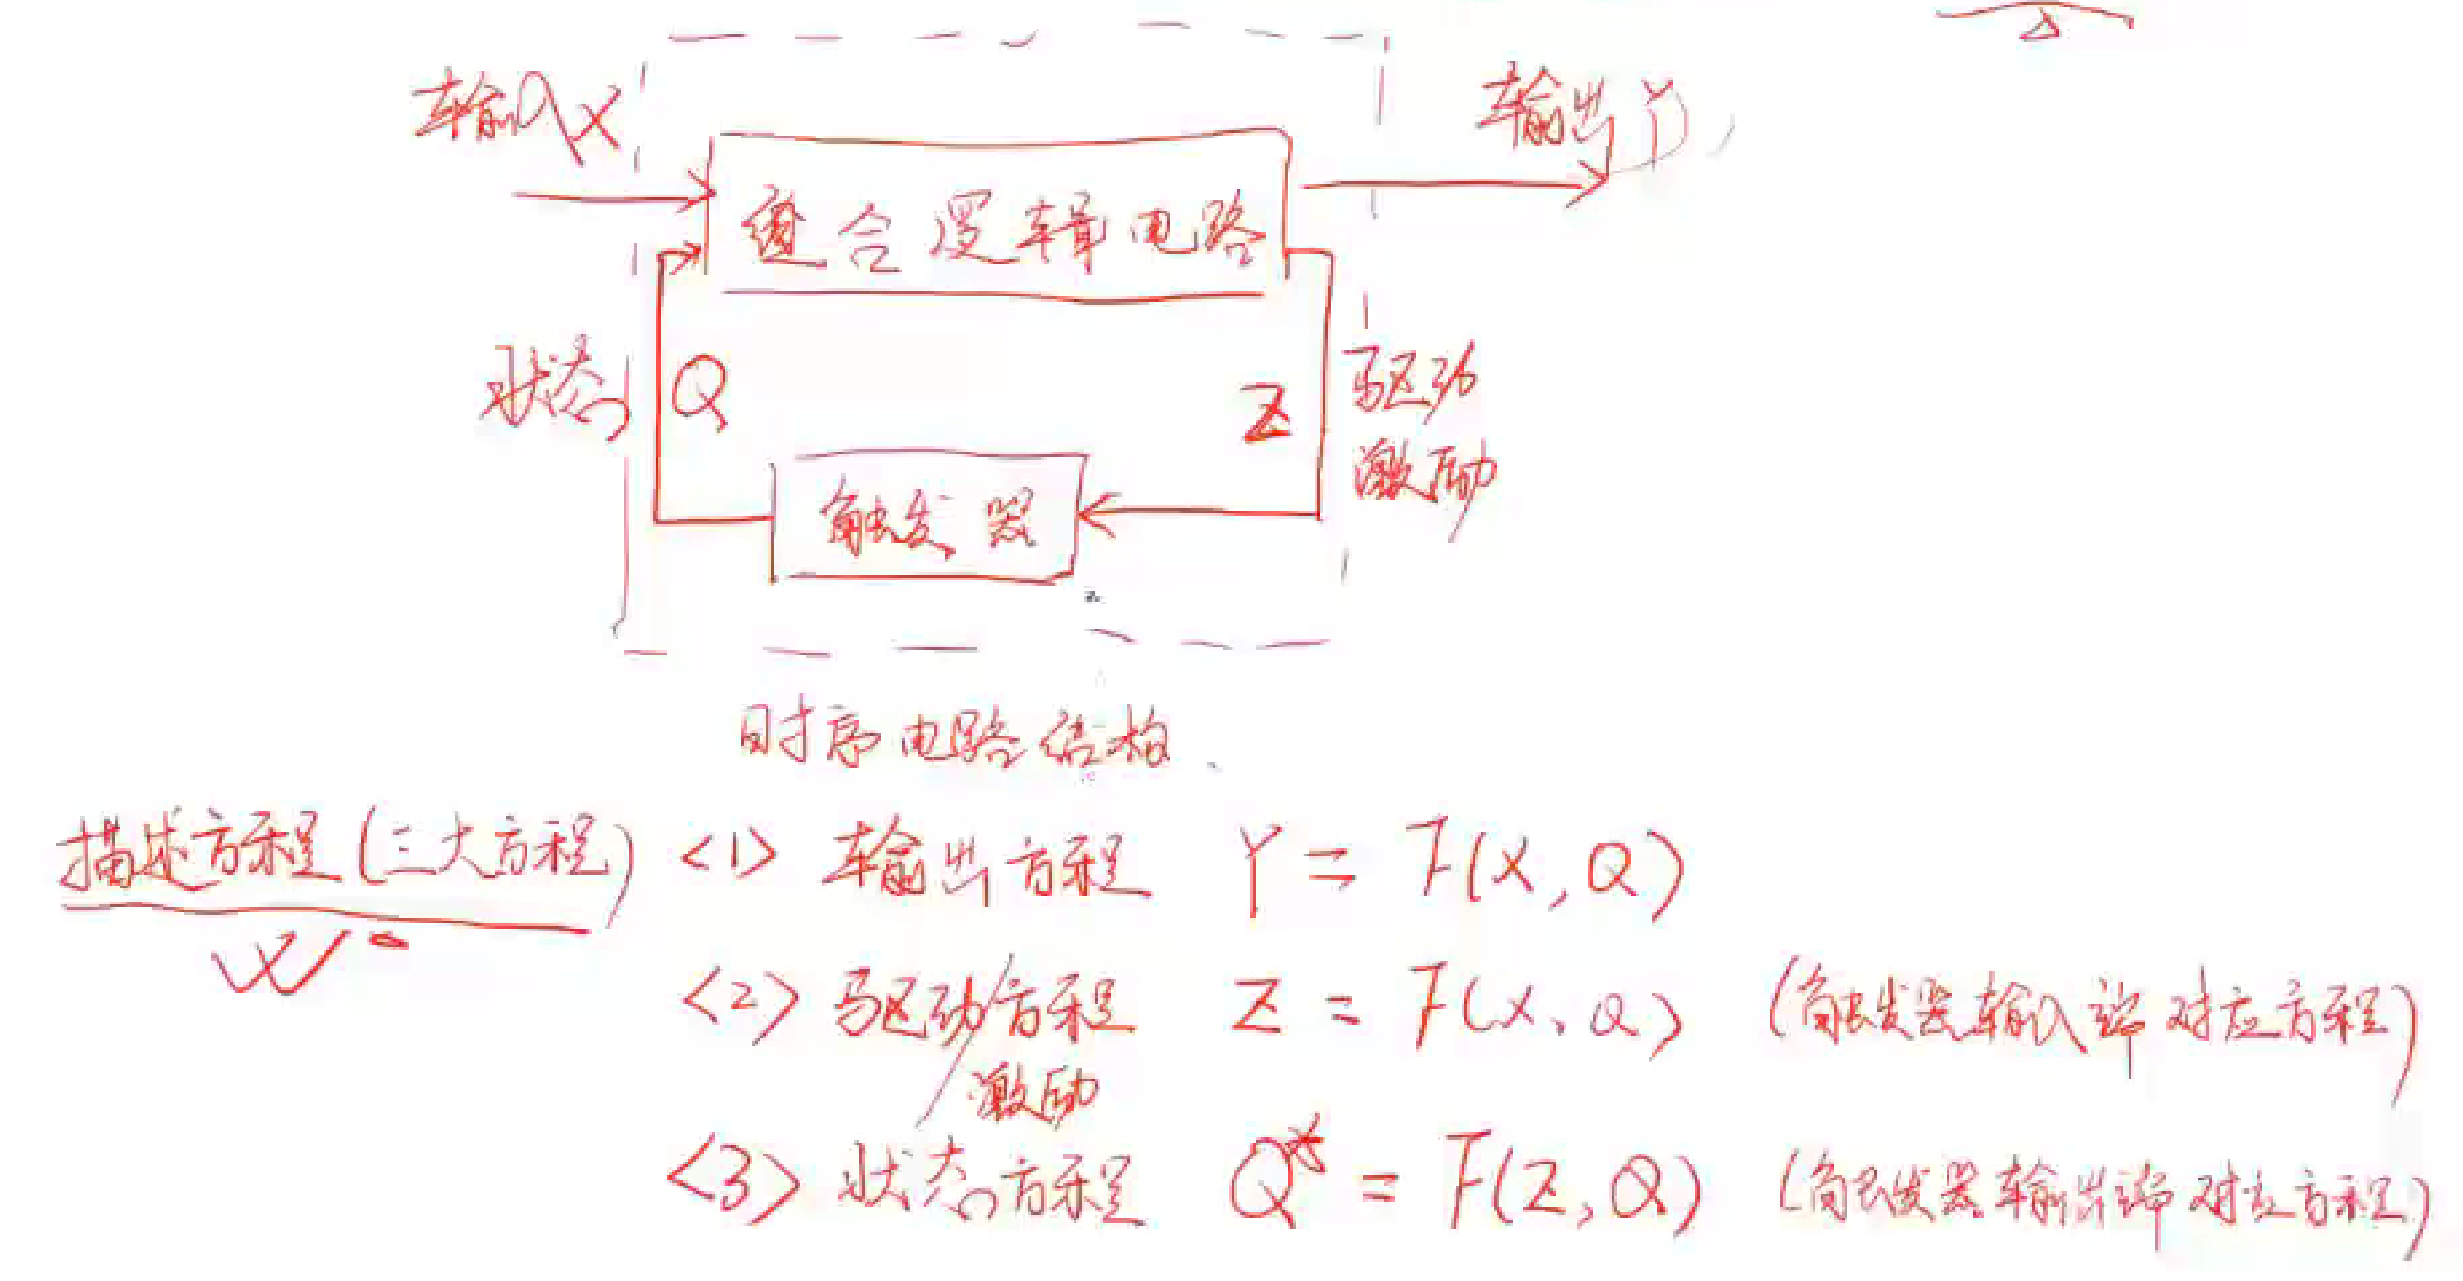 输入X
输出Y
组合逻辑电路
状态
Q
Z
驱动
激励
触发器
时序电路结构
描述方程(三大方程) <1> 输出方程 Y = F(X, Q)
<2> 驱动/方程 Z = F(X, Q) (触发器输入端对应方程)
激励
<3> 状态方程 Q* = F(Z, Q) (触发器输出端对应方程)